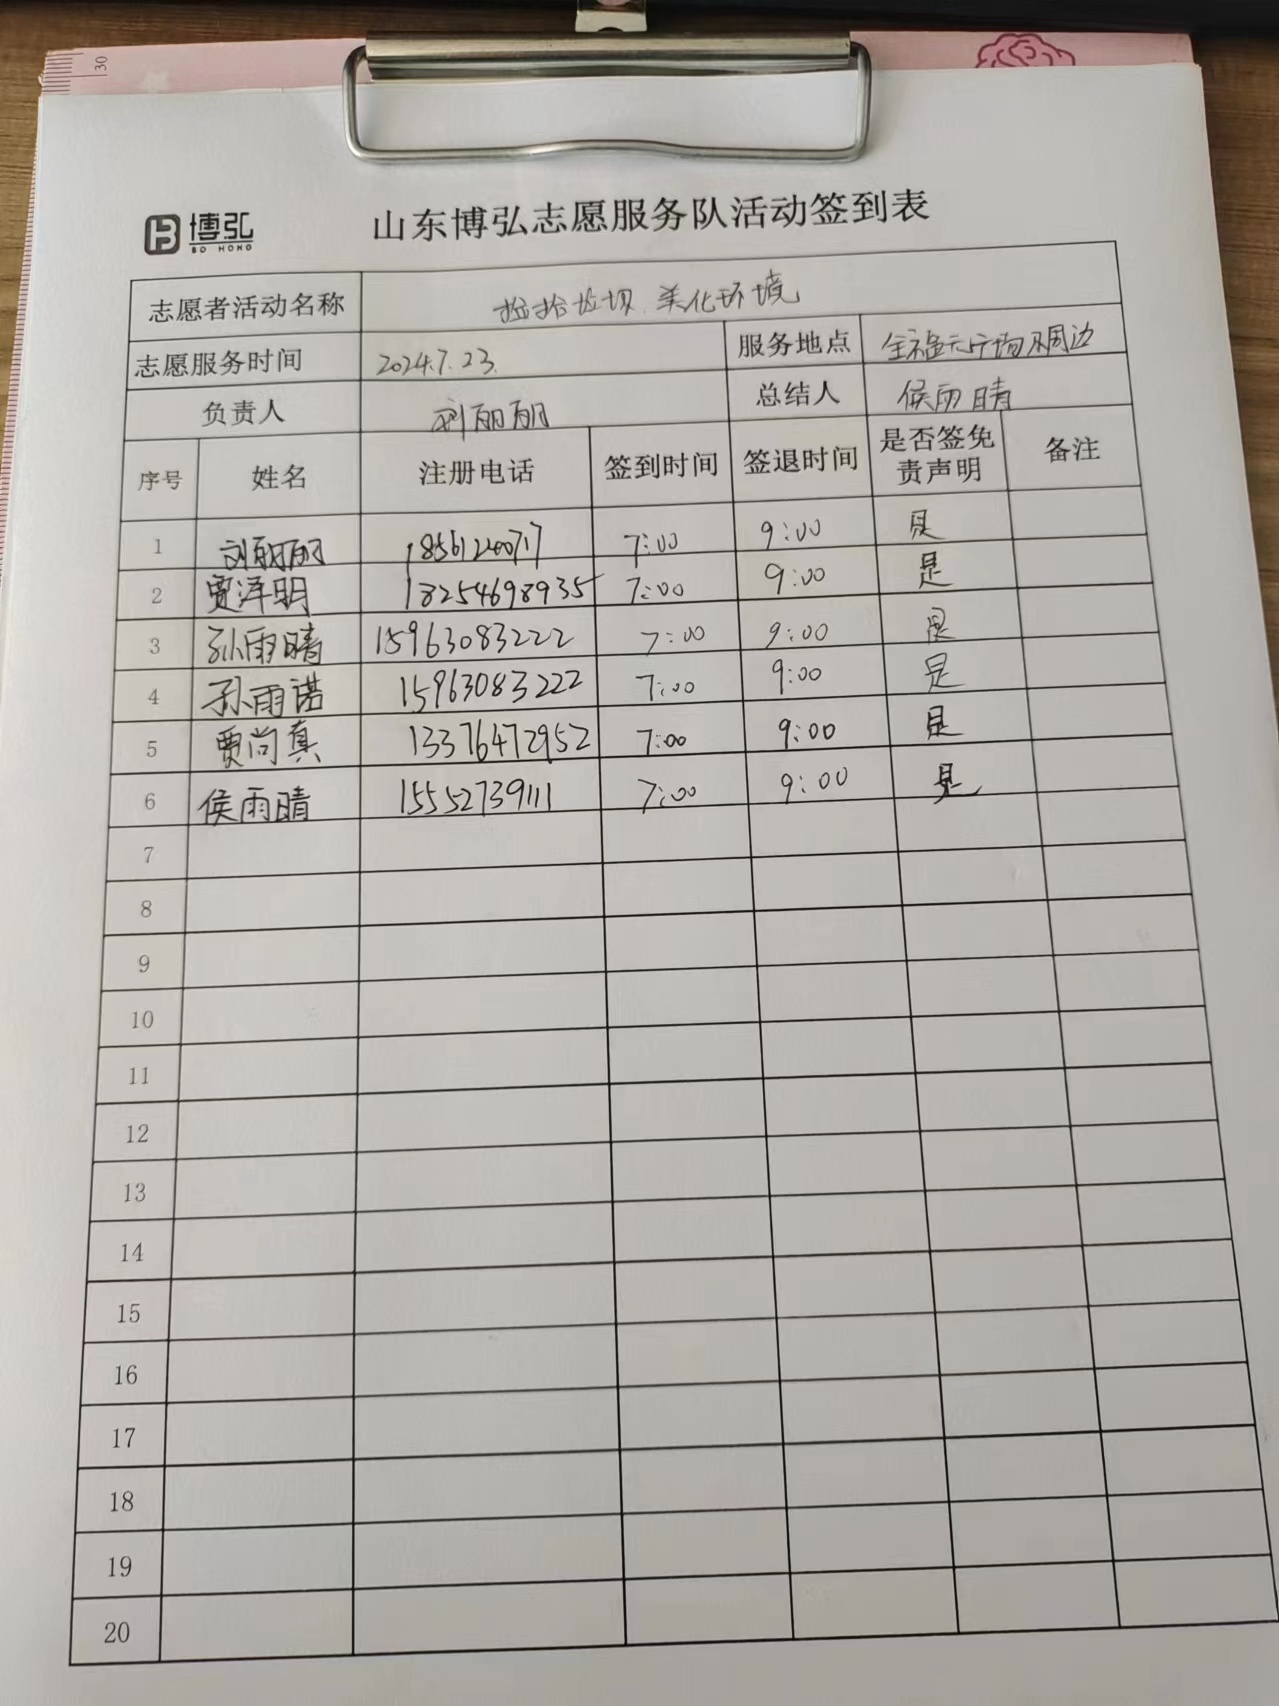 30
博弘
BO HONG
山东博弘志愿服务队活动签到表
志愿者活动名称 捡拾垃圾 美化环境
志愿服务时间 2024.7.23. 服务地点 全福元广场及周边
负责人 刘丽丽 总结人 侯雨晴
序号 姓名 注册电话 签到时间 签退时间 是否签免责声明 备注
1 刘丽丽 7:00 9:00 是
2 贾泽明 18254698935 7:00 9:00 是
3 孙雨晴 15963083222 7:00 9:00 是
4 孙雨诺 15963083222 7:00 9:00 是
5 贾尚真 13376472952 7:00 9:00 是
6 侯雨晴 15552739111 7:00 9:00 是
7
8
9
10
11
12
13
14
15
16
17
18
19
20